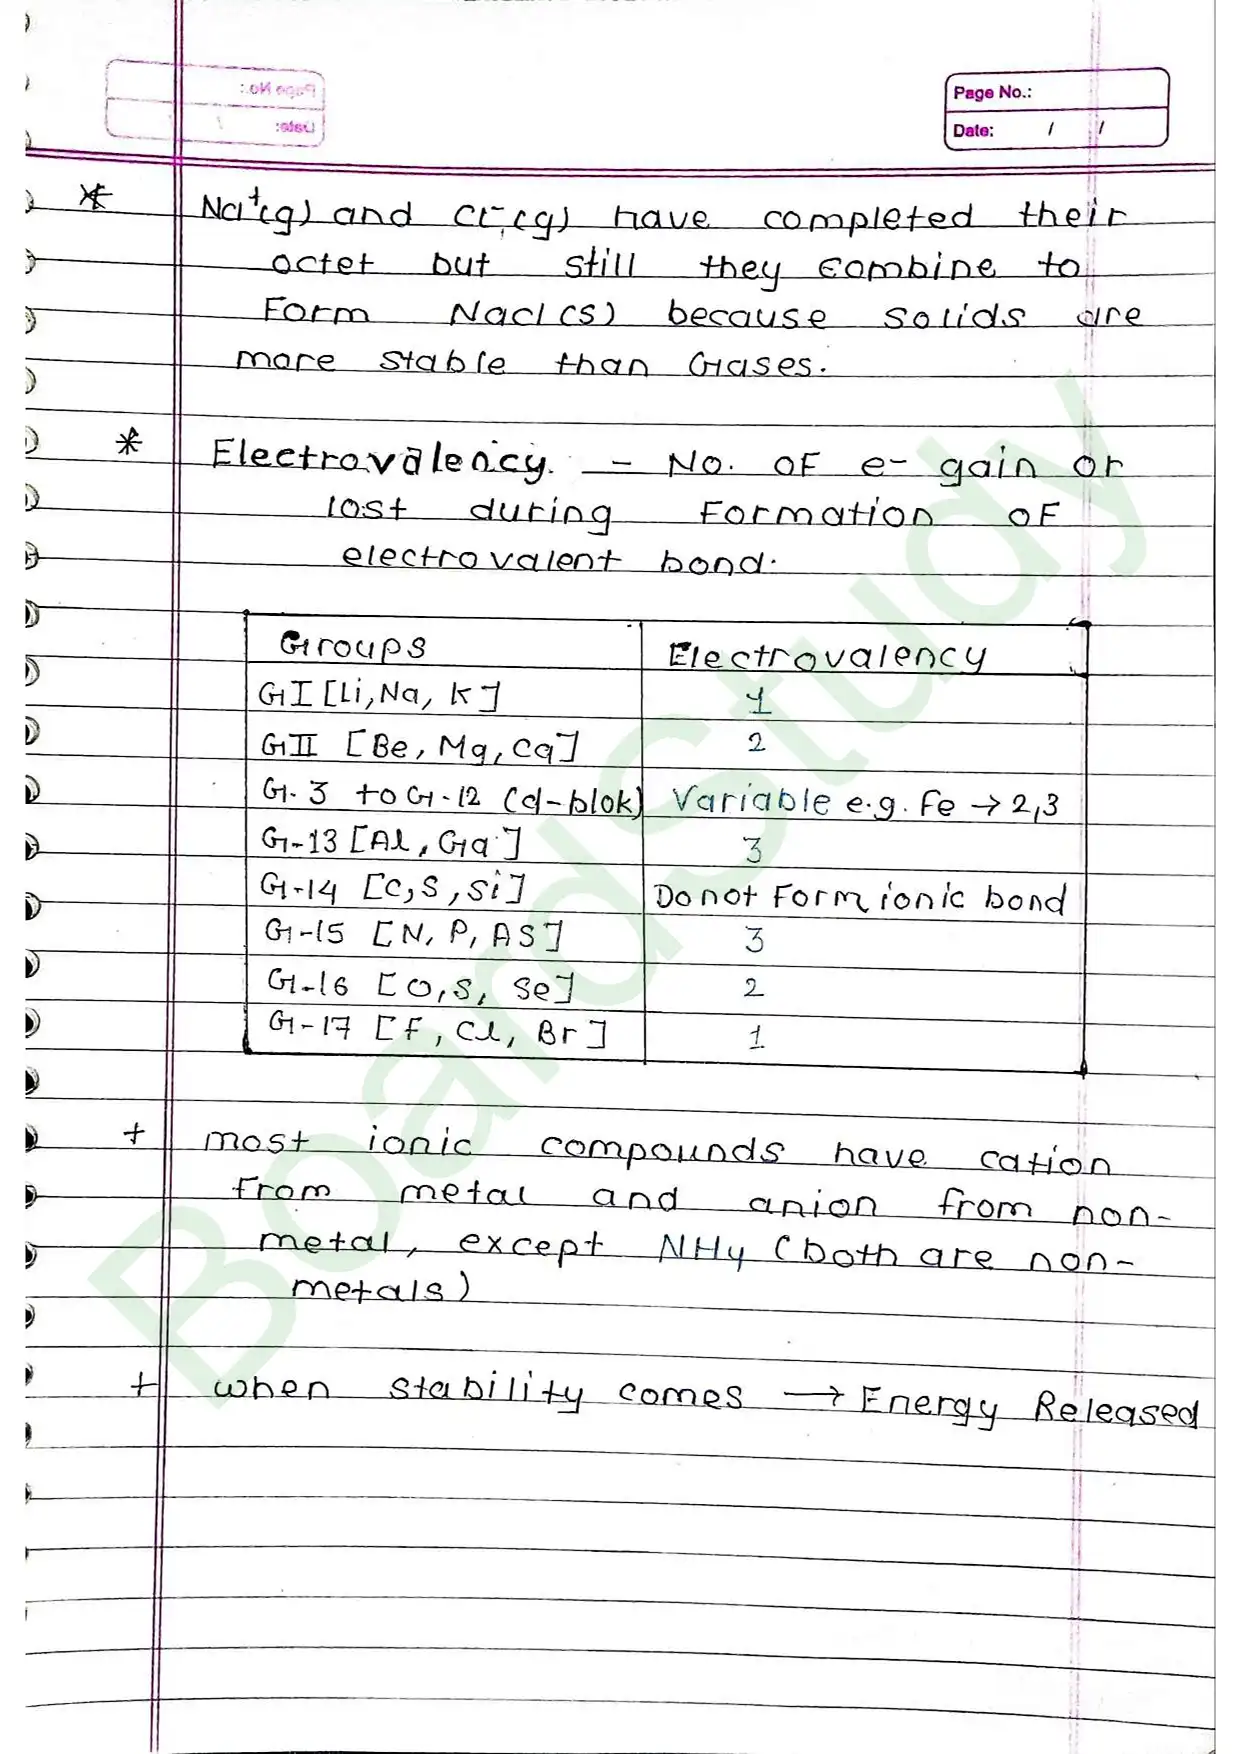 Page No.:
Date: / /
* Na⁺(g) and Cl⁻(g) have completed their
octet but still they combine to
Form Nacl(s) because solids are
more stable than Gases.
* Electrovalency. - No. OF e- gain or
lost during Formation OF
electrovalent bond.
Groups Electrovalency
GI [Li, Na, K] 1
GII [Be, Mg, Ca] 2
G. 3 to G-12 (d-blok) Variable e.g. Fe → 2,3
G-13 [Al, Ga] 3
G-14 [C, S, Si] Do not Form ionic bond
G-15 [N, P, AS] 3
G-16 [O, S, Se] 2
G-17 [F, Cl, Br] 1
+ most ionic compounds have cation
from metal and anion from non-
metal, except NH4 (both are non-
metals)
+ when stability comes → Energy Released
BoardStudy